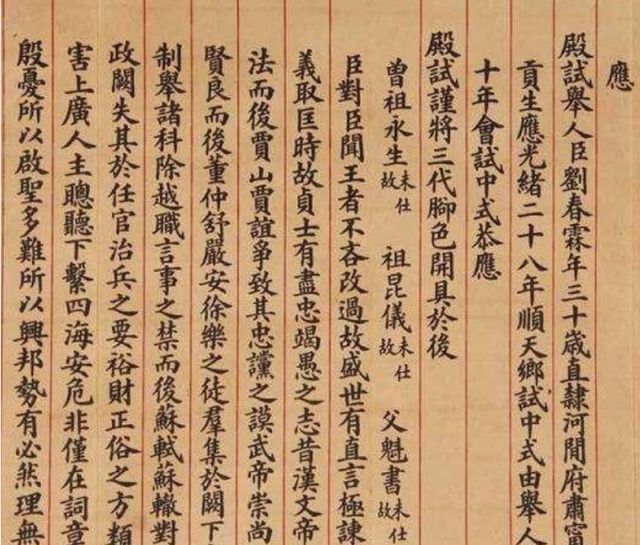 應
殿試舉人臣劉春霖年三十歲直隸河間府肅甯
貢生應光緒二十八年順天鄉試中式由舉人
十年會試中式恭應
殿試謹將三代腳色開具於後
曾祖永生未仕故 祖昆儀未仕故 父魁書未仕故
臣對臣聞王者不吝改過故盛世有直言極諫
義取匡時故貞士有盡忠竭愚之志昔漢文帝
法而後賈山賈誼爭致其忠讜之謨武帝崇尚
賢良而後董仲舒嚴安徐樂之徒羣集於闕下
制舉諸科除越職言事之禁而後蘇軾蘇轍對
政闕失其於任官治兵之要裕財正俗之方類
害上廣人主聰聽下繫四海安危非僅在詞章
殷憂所以啟聖多難所以興邦勢有必然理無